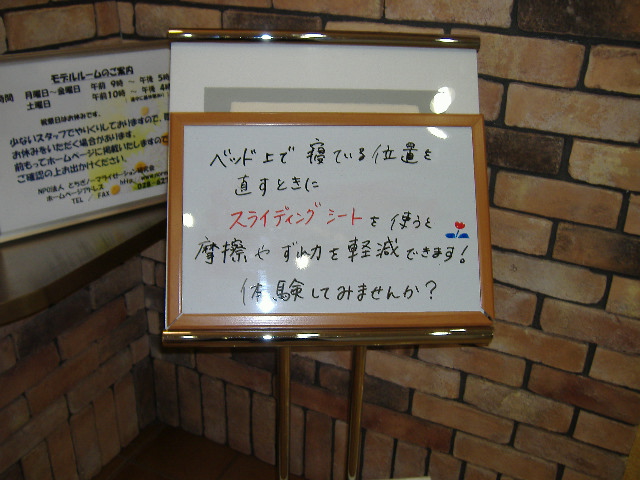 モデルルームのご案内
時間 月曜日～金曜日 午前9時～午後5時
土曜日 午前10時～午後4
祝祭日はお休みです。
少ないスタッフでやりくりしておりますので、
お休みをいただく場合があります。
前もってホームページに掲載いたしますので
ご確認の上お出かけください。
NPO法人 とちぎノーマライゼーション研究会
ホームページアドレス
TEL / FAX
ベッド上で寝ている位置を
直すときに
スライディングシートを使うと
摩擦やずれ力を軽減できます!
体験してみませんか?